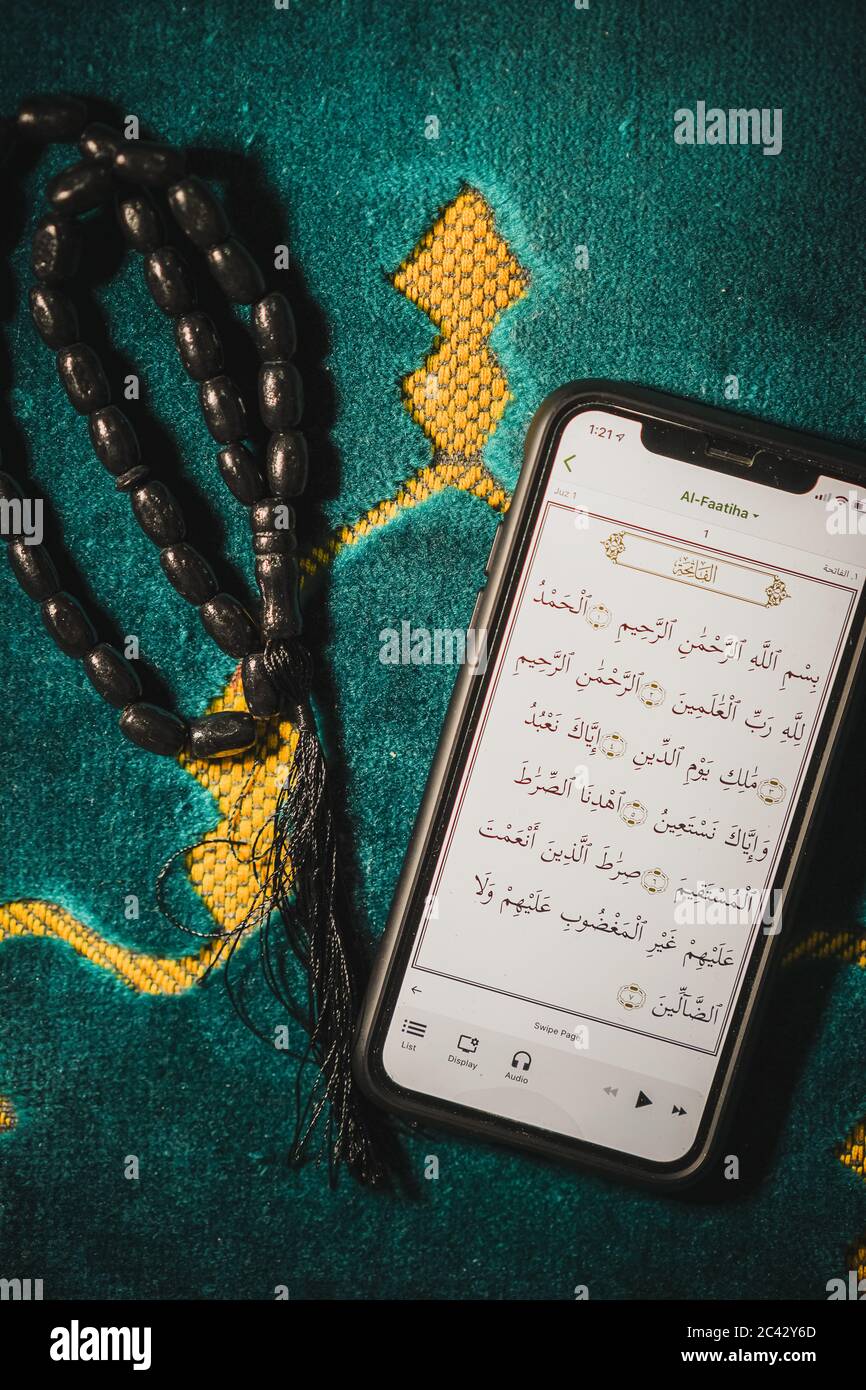 1:21
Al-Faatiha
Juz 1
1
١. الفاتحة
الفَاتِحَة
بِسْمِ ٱللَّهِ ٱلرَّحْمَٰنِ ٱلرَّحِيمِ ١ ٱلْحَمْدُ
لِلَّهِ رَبِّ ٱلْعَٰلَمِينَ ٢ ٱلرَّحْمَٰنِ ٱلرَّحِيمِ
٣ مَٰلِكِ يَوْمِ ٱلدِّينِ ٤ إِيَّاكَ نَعْبُدُ
وَإِيَّاكَ نَسْتَعِينُ ٥ ٱهْدِنَا ٱلصِّرَٰطَ
ٱلْمُسْتَقِيمَ ٦ صِرَٰطَ ٱلَّذِينَ أَنْعَمْتَ
عَلَيْهِمْ غَيْرِ ٱلْمَغْضُوبِ عَلَيْهِمْ وَلَا
ٱلضَّآلِّينَ ٧
Swipe Page
List
Display
Audio
a
alamy
a
a
alamy
Image ID: 2C42Y6D
www.alamy.com